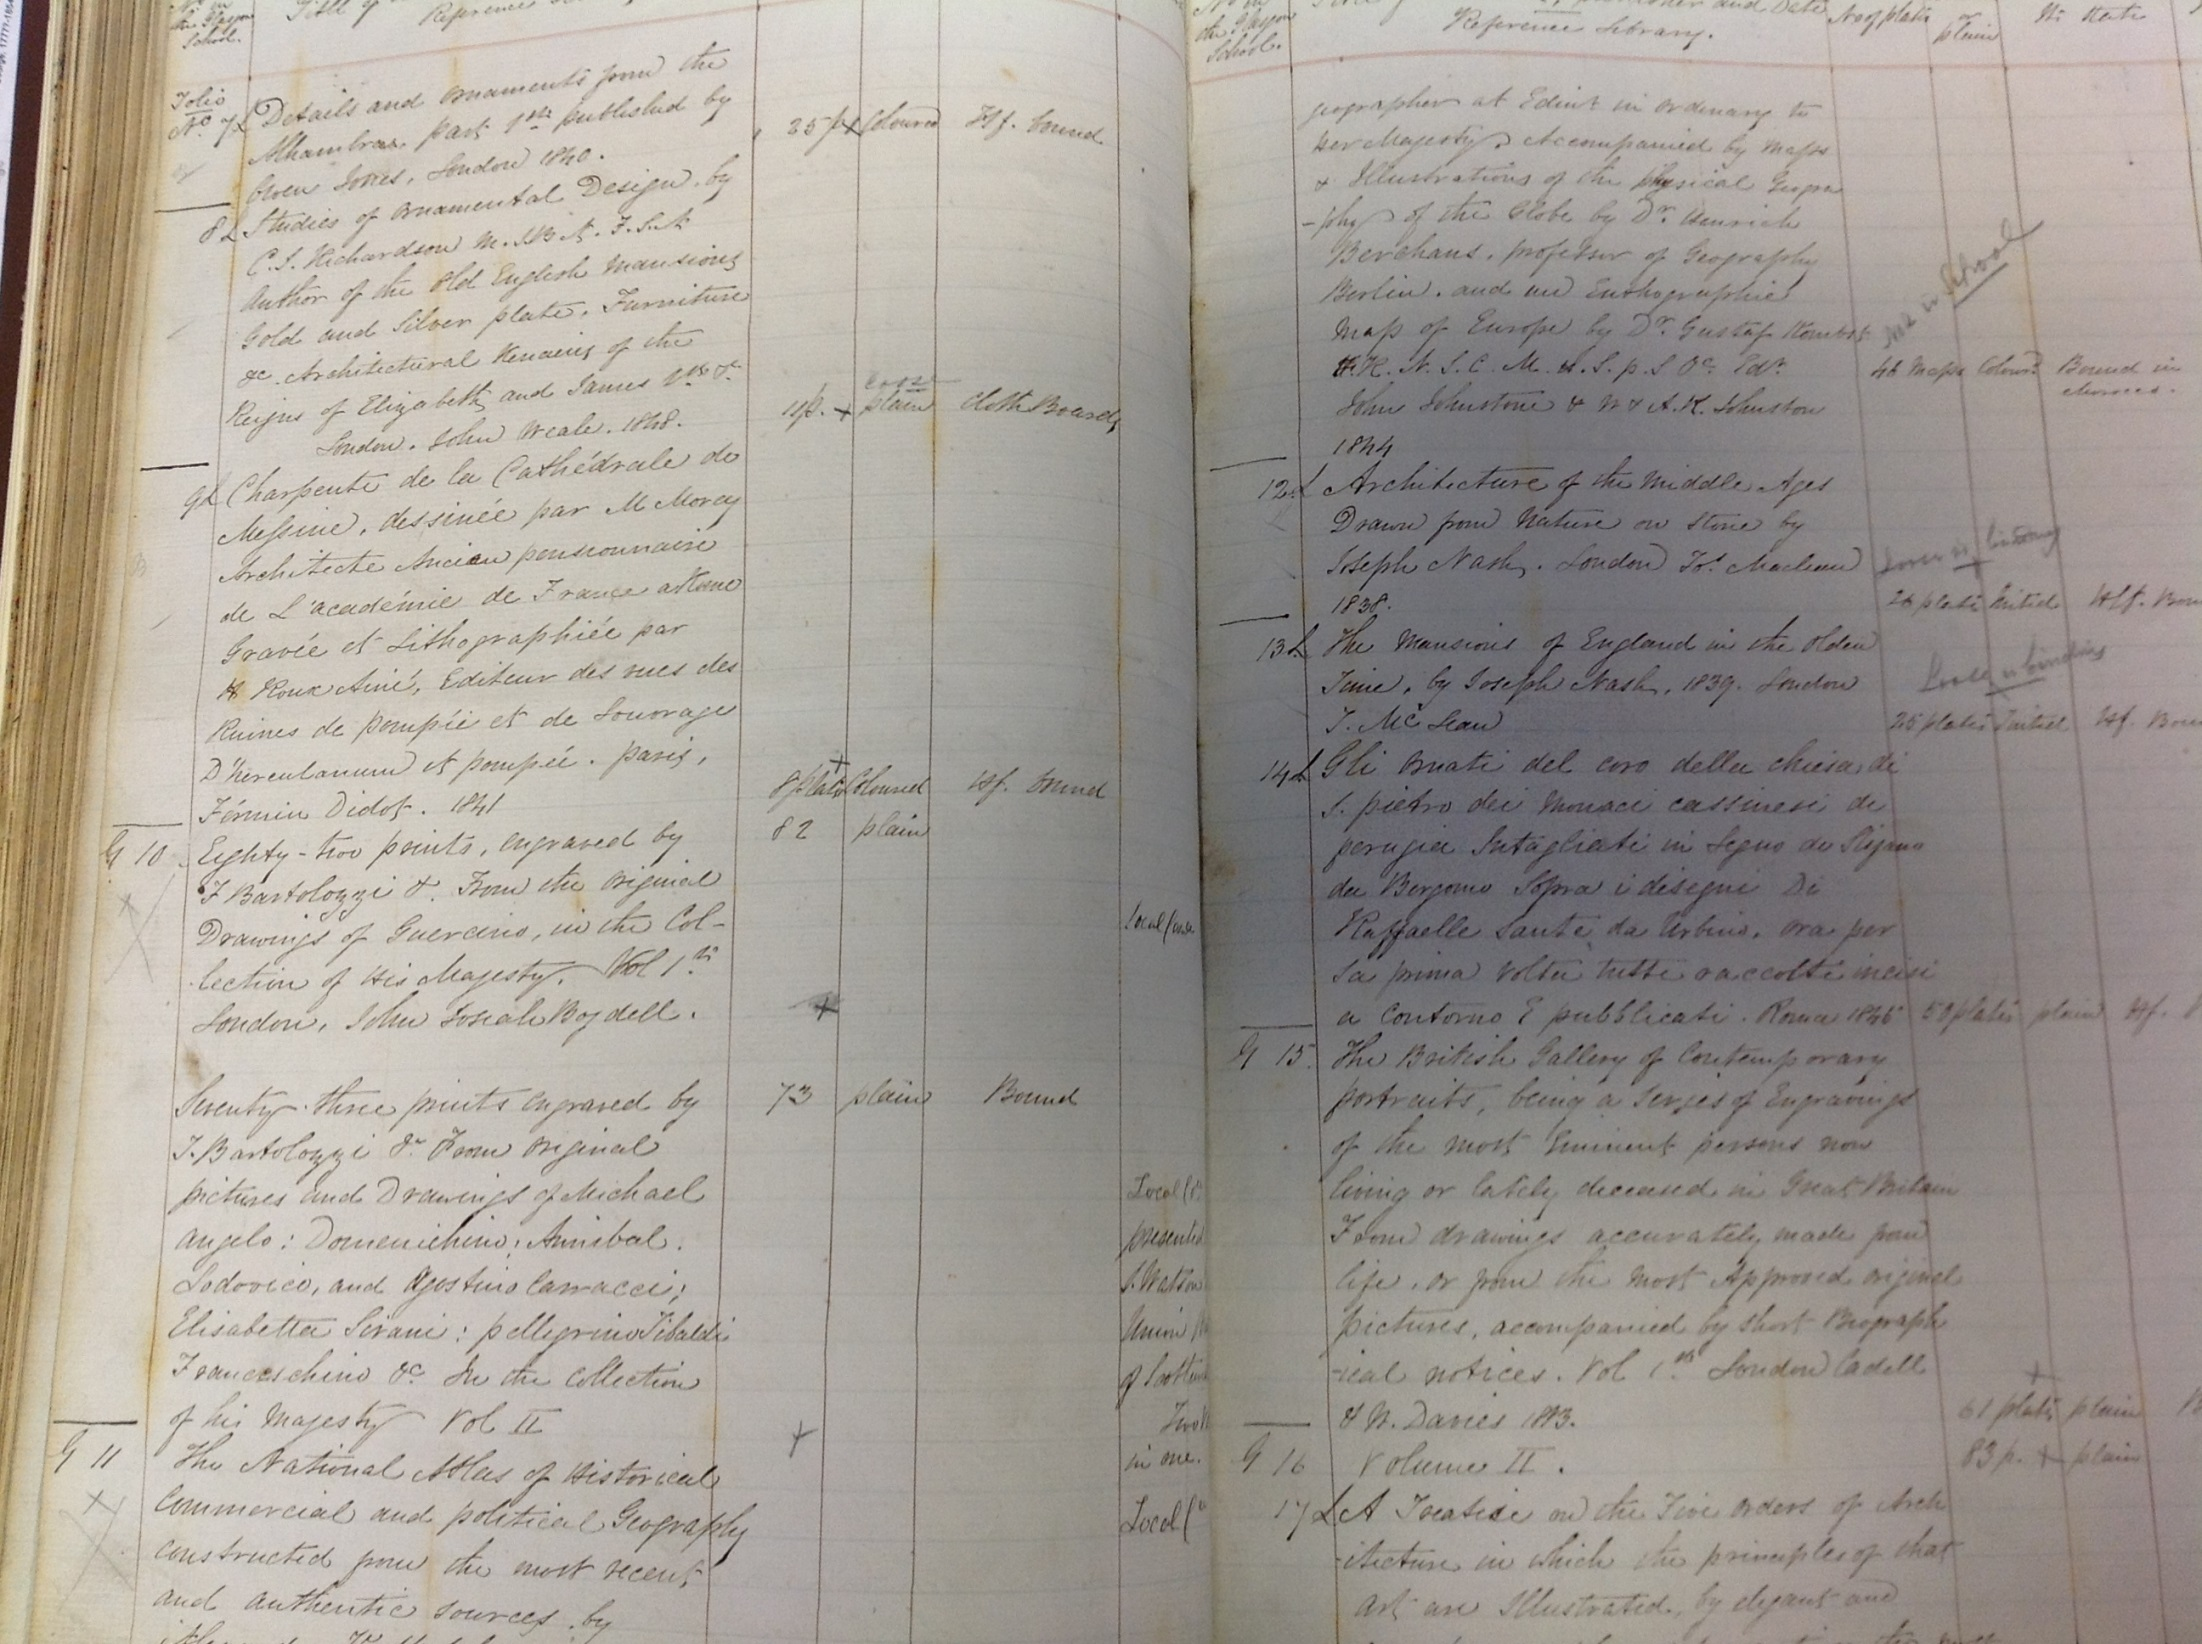 the Glasgow
School.
Reference
Folio
No. 7 L Details and Ornaments from the
Alhambra. part 1st published by
Owen Jones, London 1840.
25 p. + Coloured Hf. bound
8 L Studies of Ornamental Design, by
C. J. Richardson M.I.B.A. F.S.A
Author of the Old English Mansions
Gold and Silver plate, Furniture
&c. Architectural Remains of the
Reigns of Elizabeth and James 1st &.
London. John Weale. 1848.
plain Cloth Boards
9 L Charpente de la Cathédrale de
Messine, dessinée par M Morey
Architecte Ancien pensionnaire
de L'académie de France a Rome
Gravée et Lithographiée par
H Roux Ainé, Editeur des vues des
Ruines de Pompéi et de Louvrage
D'herculanum et pompéi. paris,
Férmin Didot. 1841
8 plates Coloured Hf. bound
G 10 Eighty-two prints, engraved by
F Bartolozzi &. From the Original
Drawings of Guercino, in the Col-
lection of His Majesty. Vol 1st
London, John Josiah Boydell.
82 plain
Local
Seventy-three prints engraved by
F. Bartolozzi &c From Original
pictures and Drawings of Michael
Angelo: Domenichino; Annibal.
Lodovico, and Agostino Carracci;
Elisabetta Sirani: pellegrino Tibaldi
Franceschino &c In the Collection
of his Majesty Vol II
73 plain Bound
Local
presented
J. Watson
Union
of
Two
in one.
G 11 The National Atlas of Historical
Commercial and political Geography
constructed from the most recent
and authentic sources, by
Local
the Glasgow
School.
Publisher and Date
Reference Library.
No of plates
or
plain
Its State
geographer at Edinr in Ordinary to
Her Majesty, Accompanied by Maps
& Illustrations of the physical Geogra
-phy of the Globe by Dr. Heinrich
Berghaus. professor of Geography
Berlin. and an Enthographic
Map of Europe by Dr. Gustaf Kombst
John Johnstone & W & A. K. Johnston
1844
Not in School
46 Maps Colourd. Bound in
Morocco.
12 L Architecture of the Middle Ages
Drawn from Nature on Stone by
Joseph Nash. London Tos. Maclean
1838.
Loose in binding
plates tinted Hf. Boun
13 L The Mansions of England in the Olden
Time, by Joseph Nash, 1839. London
T. Mc Lean
Loose in binding
25 plates tinted Hf. Boun
14 L Gli Ornati del coro della chiesa, di
S. pietro dei Monaci cassinesi di
perugia Intagliati in Legno da Stefano
da Bergomo Sopra i disegni Di
Raffaelle Sante da Urbino, ora per
La prima volta tutti raccolti incisi
a Contorno E pubblicati. Roma 1845
50 plates plain Hf.
G 15. The British Gallery of Contemporary
portraits, being a Series of Engravings
of the most Eminent persons now
living or lately deceased in Great Britain
From drawings accurately made from
life, or from the most Approved original
pictures, accompanied by short Biograph
-ical notices. Vol 1st London Cadell
& W. Davies 1813.
61 plates plain
G 16 Volume II.
83 p. + plain
17 L A Treatise on the Five orders of Arch
-itecture in which the principles of that
Art are Illustrated, by elegant and